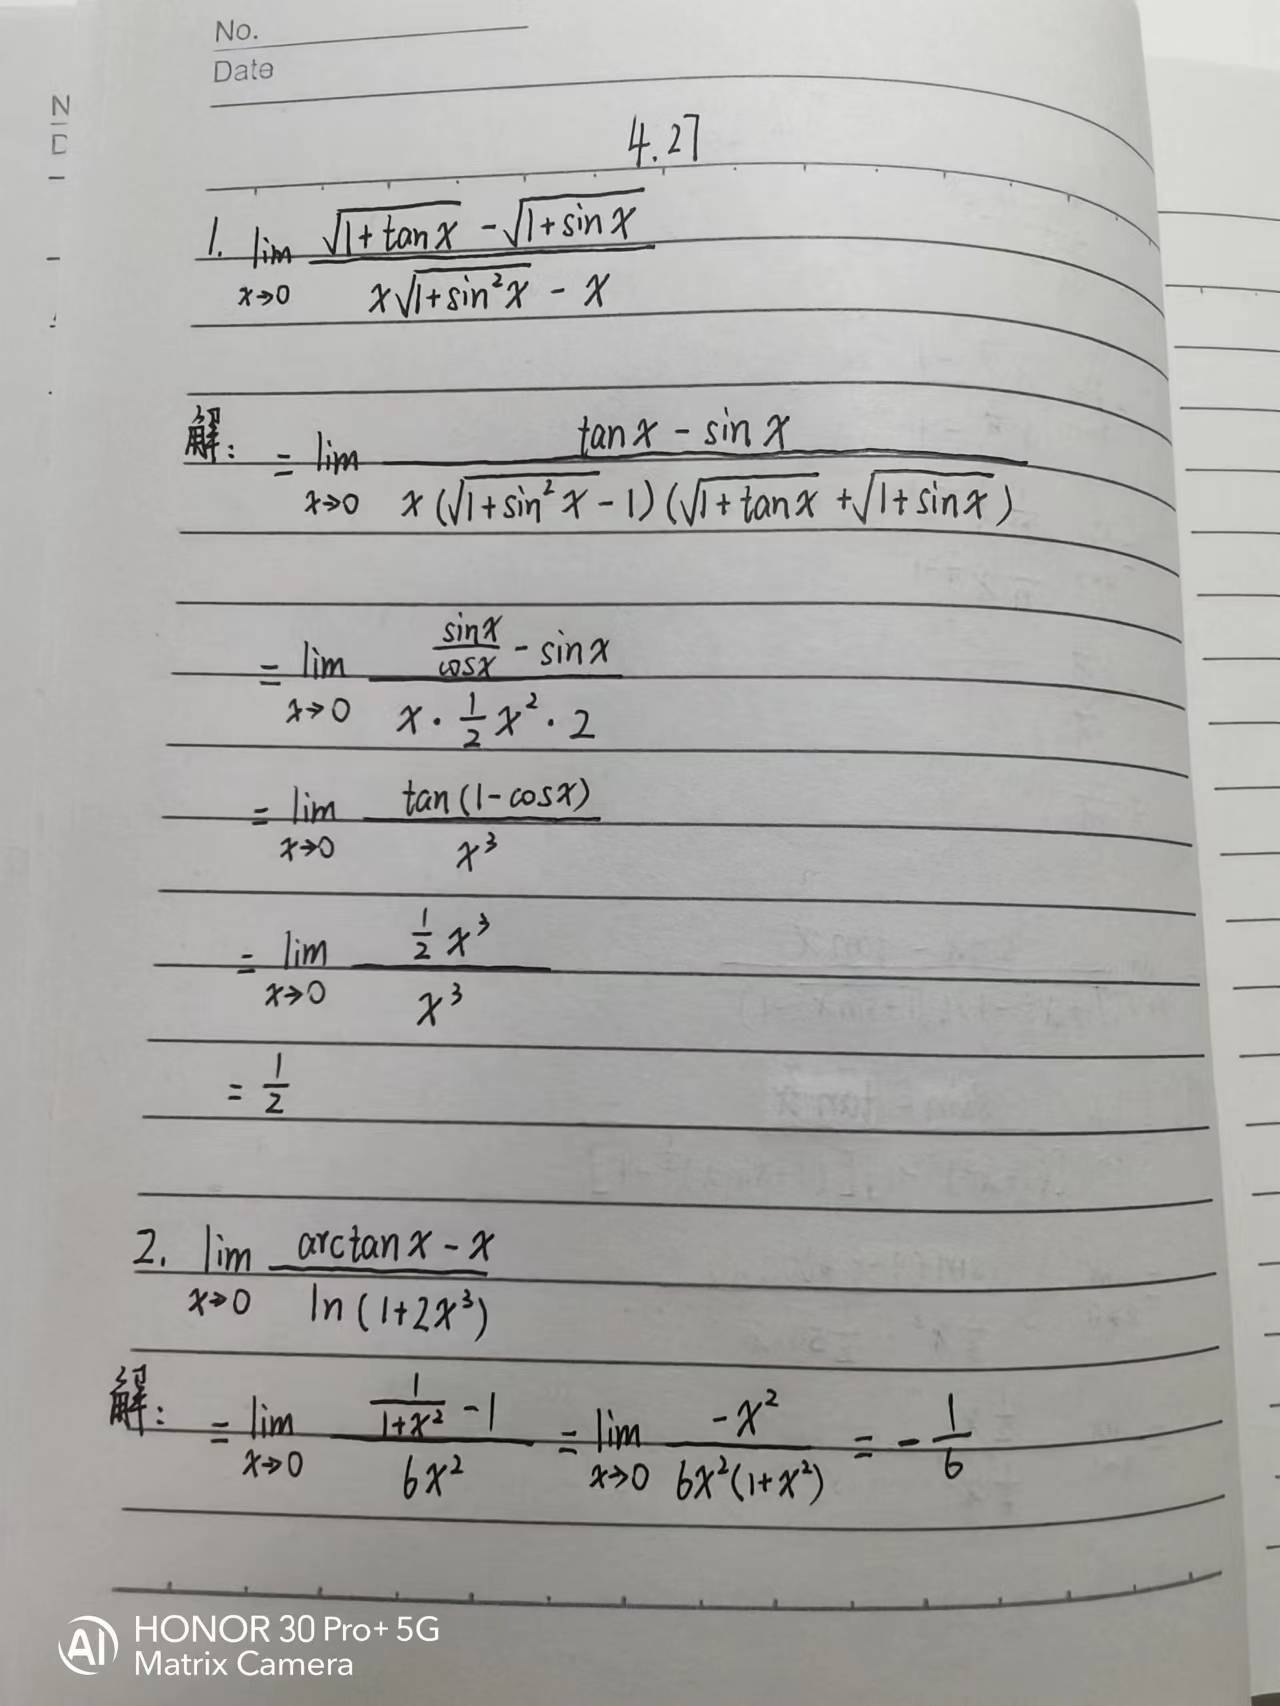 No.
Date
4.27
1. lim x→0 (√(1+tanx) - √(1+sinx)) / (x√(1+sin²x) - x)
解: = lim x→0 (tanx - sinx) / (x(√(1+sin²x) - 1)(√(1+tanx) + √(1+sinx)))
= lim x→0 (sinx/cosx - sinx) / (x · 1/2 x² · 2)
= lim x→0 tan(1-cosx) / x³
= lim x→0 (1/2 x³) / x³
= 1/2
2. lim x→0 (arctanx - x) / ln(1+2x³)
解: = lim x→0 (1/(1+x²) - 1) / 6x² = lim x→0 -x² / (6x²(1+x²)) = -1/6
AI HONOR 30 Pro+ 5G
Matrix Camera